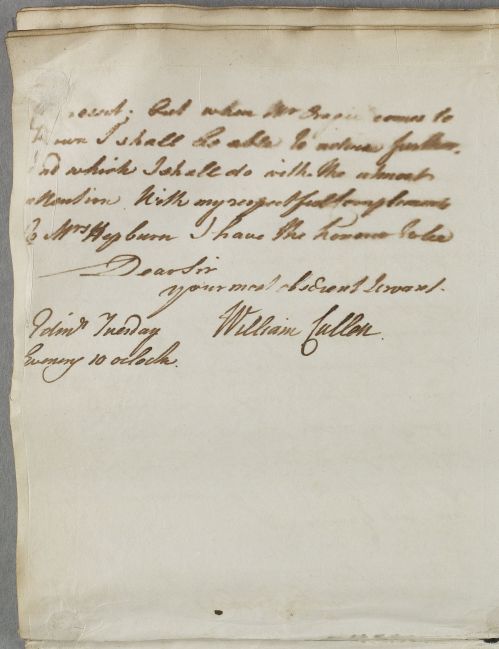 present; but when Mr Craigie comes to
Town I shall be able to advise further,
and which I shall do with the utmost
attention. With my respectful Compliments
to Mrs Hepburn I have the honour to be
Dear Sir
your most obedient servant.
Edinr Tuesday William Cullen.
Evening 10 oclock.